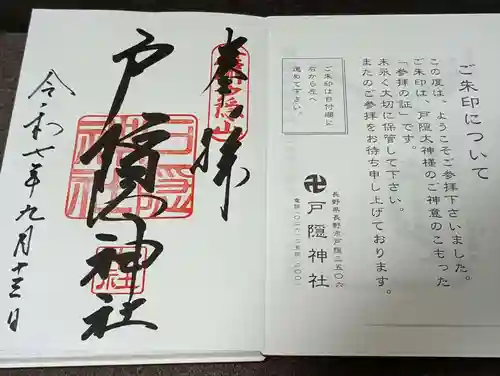 ご朱印について
この度は、ようこそご参拝下さいました。
ご朱印は、戸隠大神様のご神意のこもった
「参拝の証」です。
末永く大切に保管して下さい。
またのご参拝をお待ち申し上げております。
ご朱印は日付欄に
右から左へ
進めて下さい。
長野県長野市戸隠三五〇六
卍戸隠神社
電話〇二六・二五四・二〇〇一
奉拝
戸隠神社
令和七年九月十三日